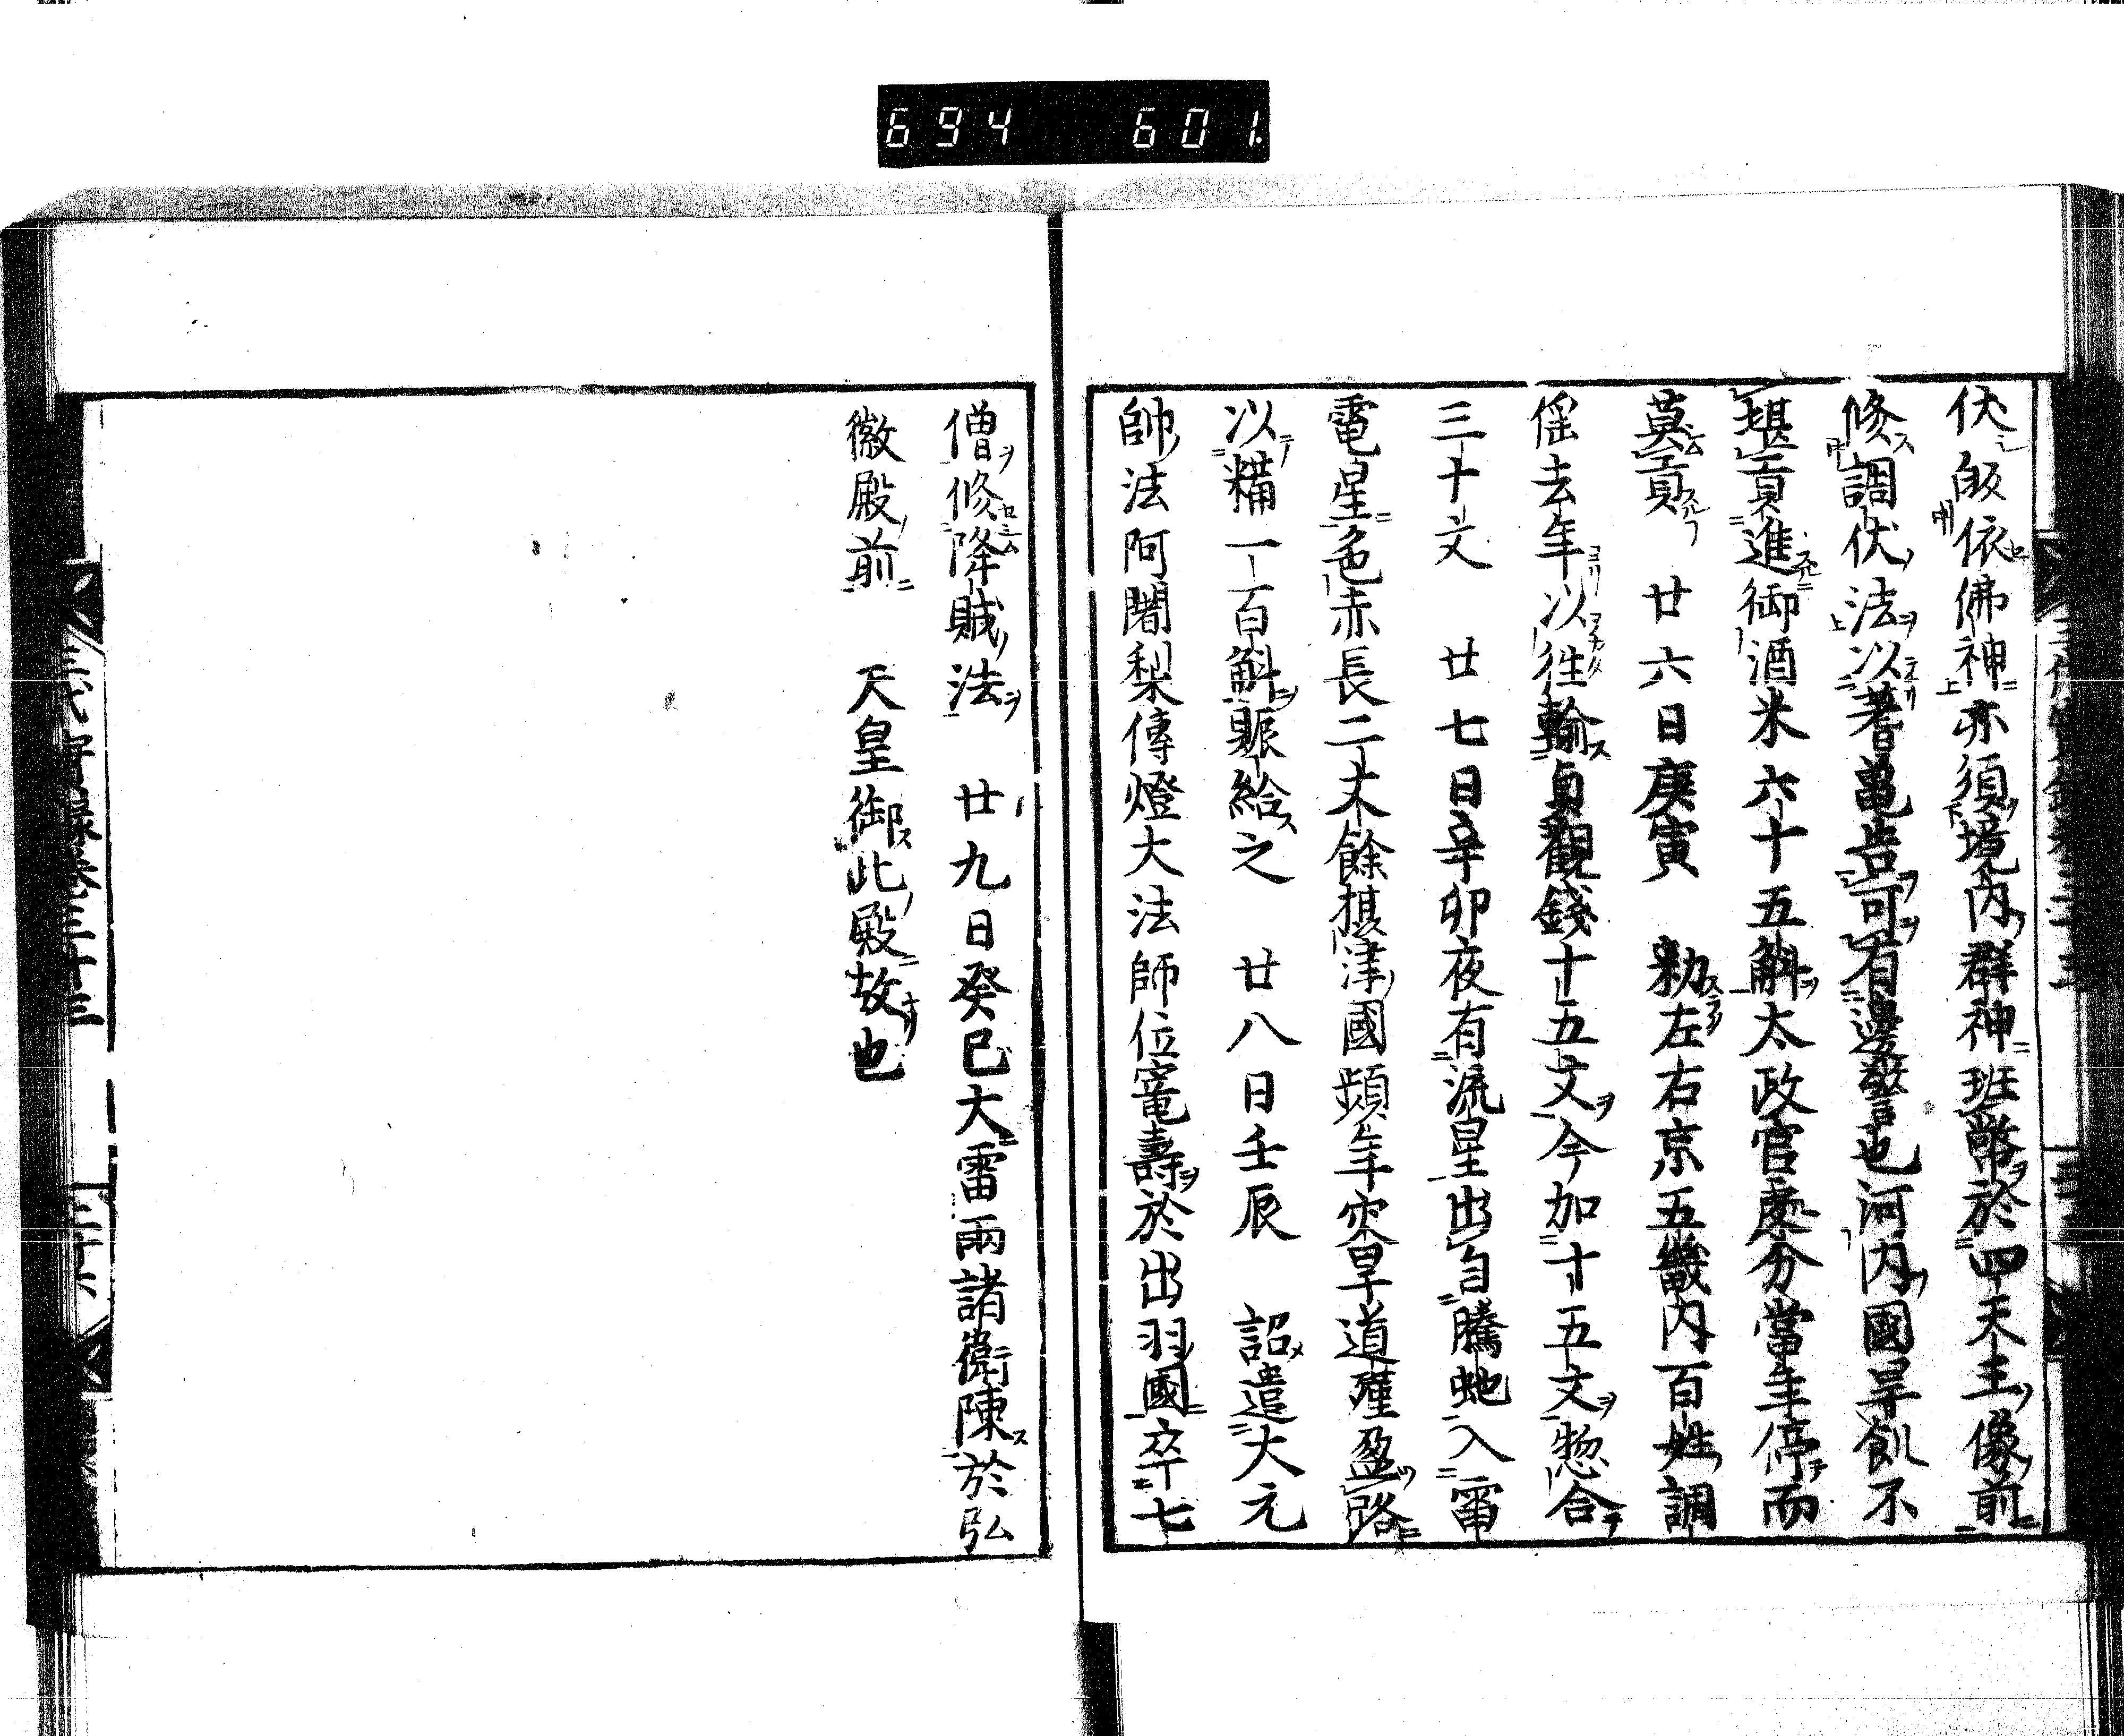 694 601.
伏皈依佛神亦須境内群神班幣於四天王像前
修調伏法以著龜告可有邊警也河内國旱飢不
堪貢進御酒米六十五斛太政官處分當年停而
莫貢　廿六日庚寅　勅左右京五畿内百姓調
徭去年以徃輸貞觀錢十五文今加十五文惣合
三十文　廿七日辛卯夜有流星出自騰虵入雷
電星色赤長二丈餘攝津國頻年灾旱道殣盈路
以糒一百斛賑給之　廿八日壬辰　詔遣大元
帥法阿闍梨傳燈大法師位寵壽於出羽國卒七
僧修降賊法　廿九日癸巳大雷雨諸衛陳於弘
徽殿前　天皇御此殿故也
三代實録卷三十三　三十六